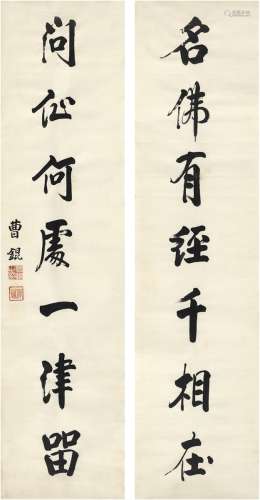 名佛有經千相在
問仙何處一津留
曹錕